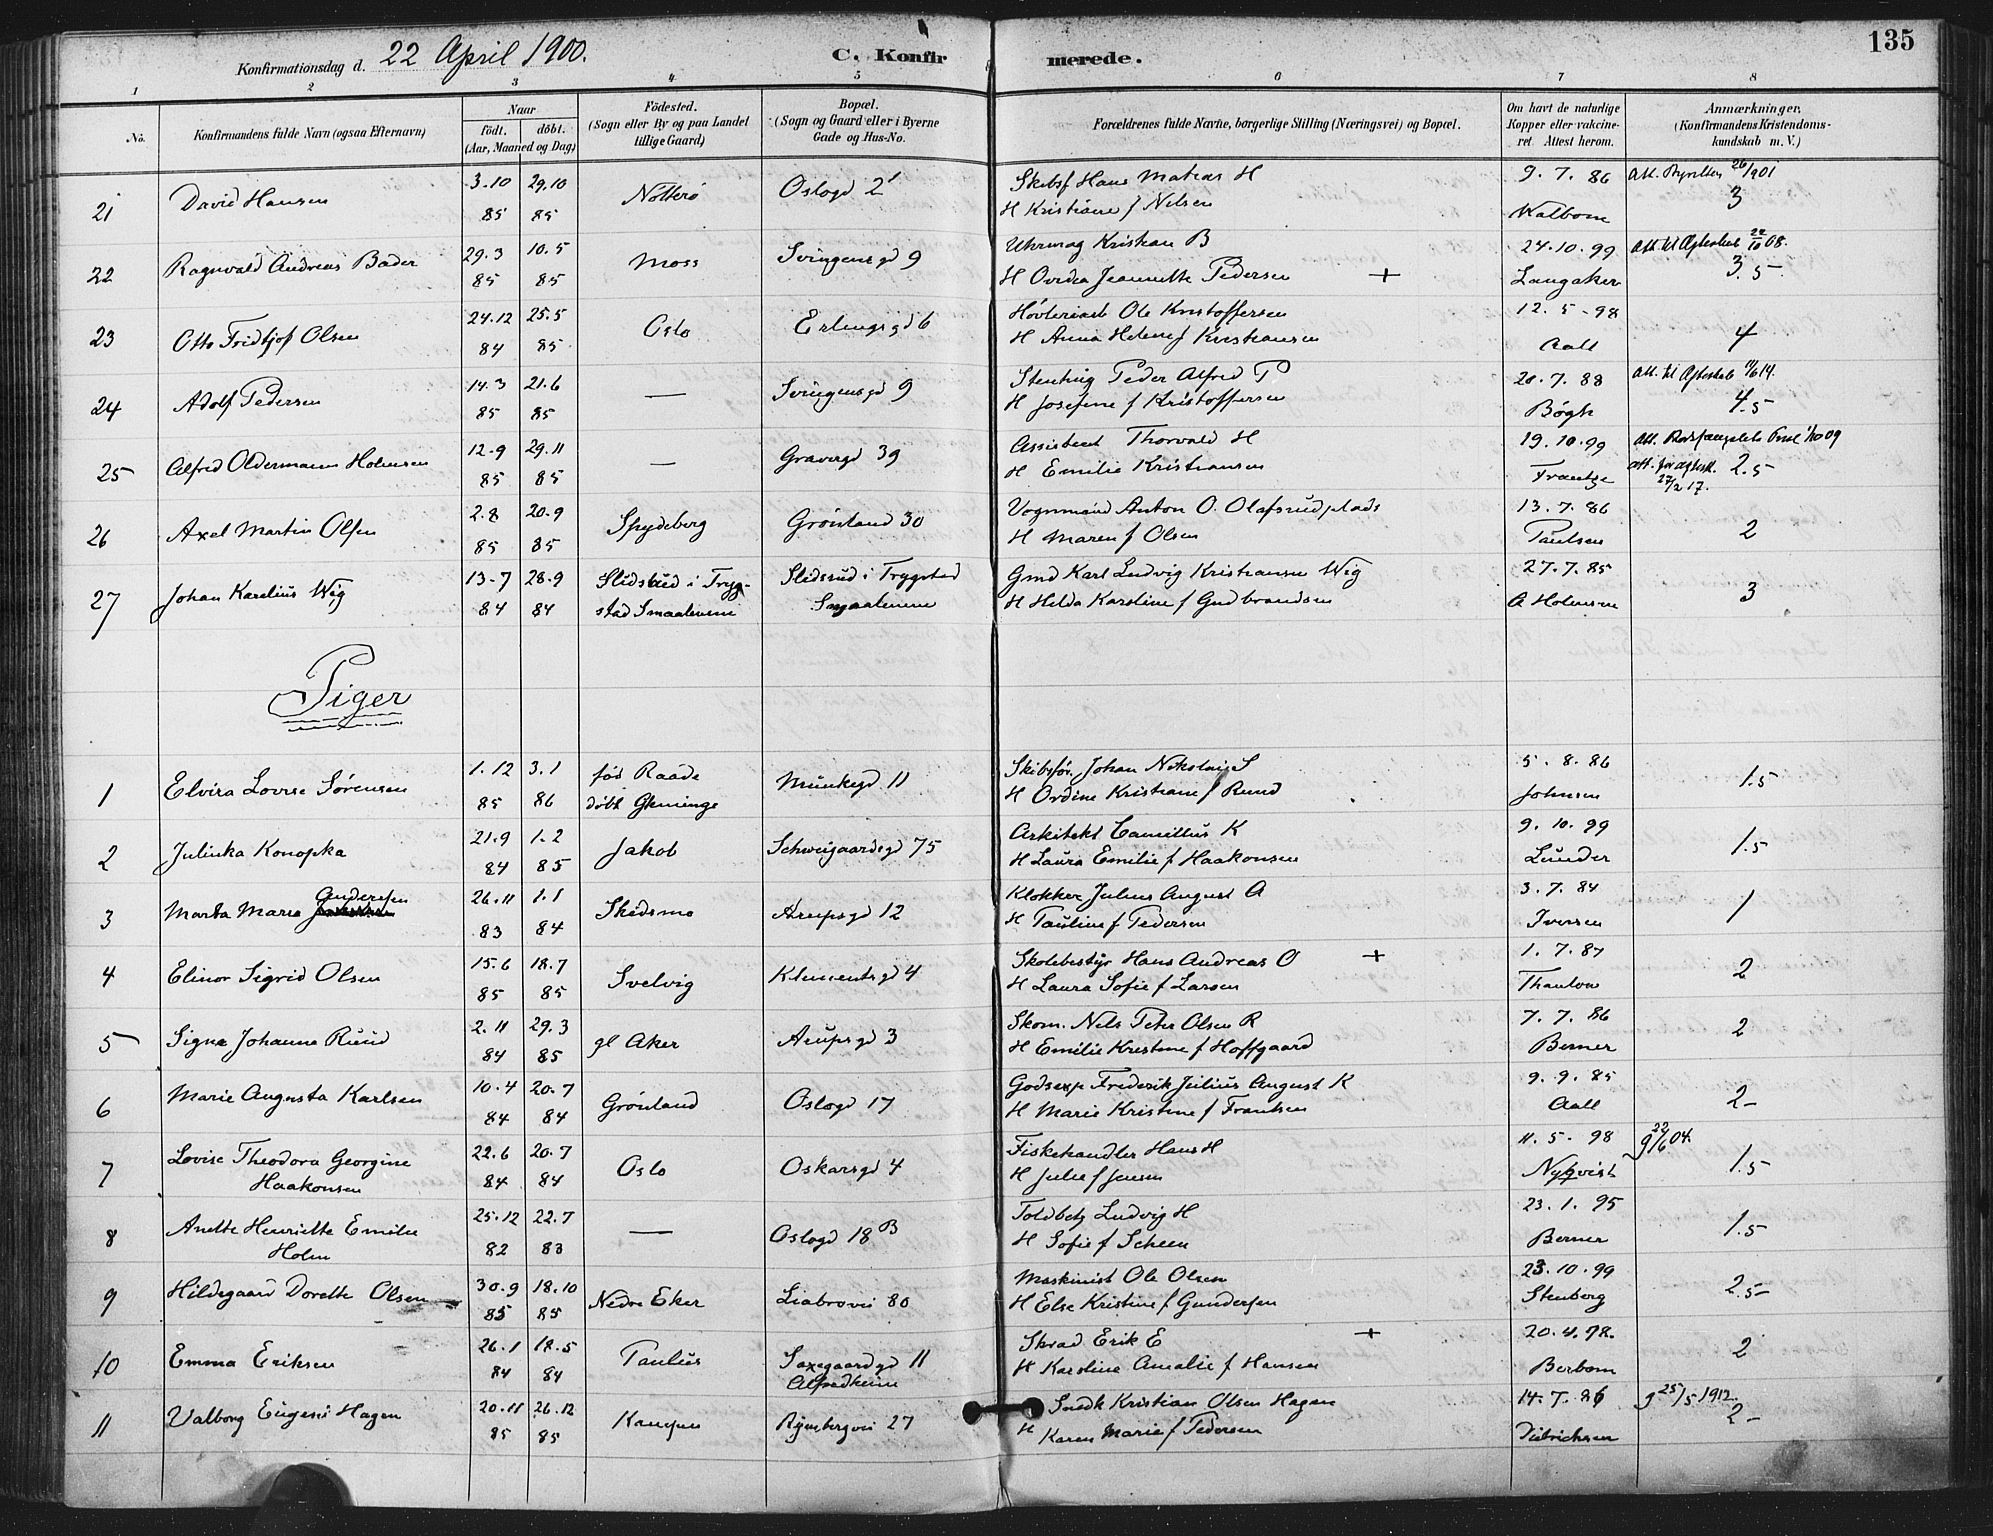 135
Konfirmationsdag d. 22 April 1900.
C. Konfirmerede.
1 2 3 4 5 6 7 8
No. Konfirmandens fulde Navn (ogsaa Efternavn) Naar födt. döbt. (Aar, Maaned og Dag) Födested. (Sogn eller By og paa Landet tillige Gaard) Bopæl. (Sogn og Gaard eller i Byerne Gade og Hus-No. Forældrenes fulde Navne, borgerlige Stilling (Næringsvei) og Bopæl. Om havt de naturlige Kopper eller vakcineret Attest herom. Anmærkninger. (Konfirmandens Kristendomskundskab m. V.)
21 David Hansen 3.10 29.10 Nötterö Oslogd 2 Skibsf Hans Matias H 9. 7. 86 26/1 901
85 85 H Kristiane f Nilsen Walbom 3
22 Ragnvald Andreas Bader 29.3 10.5 Moss Svingensgd 9 Uhrmag Kristian B 24.10.99 Att. til Ægteskab 08.
85 85 H Ovidia Jeannette Pedersen + Langaker 3.5
23 Otto Fridtjof Olsen 24.12 25.5 Oslo Erlingsgd 6 Høvleriarb Ole Kristoffersen 12. 5 - 98
84 85 H Anna Helene f Kristiansen Aall 4
24 Adolf Pedersen 14.3 21.6 — Svingensgd 9 Stenhug Peder Alfred P 20. 7. 88 Att. til Ægteskab 14.
85 85 H Josefine f Kristoffersen Bögh 4.5
25 Alfred Oldermann Holmsen 12.9 29.11 — Gravergd 39 Assistent Thorvald H 19.10.99 Att. 09
85 85 H Emilie Kristiansen Frantze att. for ægtesk. 27/2 17. 2.5
26 Axel Martin Olsen 2.8 20.9 Spydeberg Grönland 30 Vognmand Anton O. Olafsrudplads 13. 7. 86
85 85 H Maren f Olsen Paulsen 2
27 Johan Karelius Wig 13.7 28.9 Slidsrud i Tryg- Slidsrud i Trygstad Gmd Karl Ludvig Kristiansen Wig 27.7.85
84 84 stad Smaalenene Smaalenene H Hilda Karoline f Gudbrandsen A Holmsen 3
Piger
1 Elvira Lovise Sørensen 1.12 3.1 föd Raade Munkegd 11 Skibsför. Johan Nikolai S 5. 8. 86
85 86 döbt Glemminge H Ordine Kristiane f Rund Johnsen 1.5
2 Julinka Konopka 21.9 1.2 Jakob Schweigaardsgd 75 Arkitekt Camillus K 9. 10. 99
84 85 H Laura Emilie f Haakonsen Lunder 1.5
3 Marta Marie Andersen 26.11 1.1 Skedsmo Arupsgd 12 Klokker Julius August A 3. 7. 84
83 84 H Pauline f Pedersen Iversen 1
4 Elinor Sigrid Olsen 15.6 18.7 Svelvig Klementsgd 4 Skolebestyr Hans Andreas O + 1. 7. 87
85 85 H Laura Sofie f Larsen Thaulow 2
5 Signe Johanne Ruud 2.11 29.3 gl Aker Arupsgd 3 Skom. Nils Peter Olsen R 7. 7. 86
84 85 H Emilie Kristine f Hoffgaard Berner 2
6 Marie Augusta Karlsen 10.4 20.7 Grönland Oslogd 17 Godsexp Frederik Julius August K 9. 9. 85
84 84 H Marie Kristine f Frantsen Aall 2-
7 Lovise Theodora Georgine 22.6 20.7 Oslo Oskarsgd 4 Fiskehandler Hans H 11. 5. 98 g 22/6 04.
Haakonsen 84 84 H Julie f Jensen Nyqvist 1.5
8 Anette Henriette Emilie 25.12 22.7 — Oslogd 18 B Toldbetj Ludvig H 23. 1. 95
Holm 82 83 H Sofie f Scheen Berner 1.5
9 Hildegaard Dorette Olsen 30.9 18.10 Nedre Eker Liabrovei 80 Maskinist Ole Olsen 23.10.99
85 85 H Else Kristine f Gundersen Stenberg 2.5
10 Emma Eriksen 26.1 18.5 Paulus Saxegaardgd 11 Skræd Erik E + 20.4.98.
84 84 Alfredheim H Karoline Amalie f Hansen Berbom 2
11 Valborg Eugeni Hagen 20.11 26.12 Kampen Rynbergvei 27 Snedk Kristian Olsen Hagen 14.7.86 g 25/5 1912.
85 85 H Karen Marie f Pedersen Dietrichsen 2-